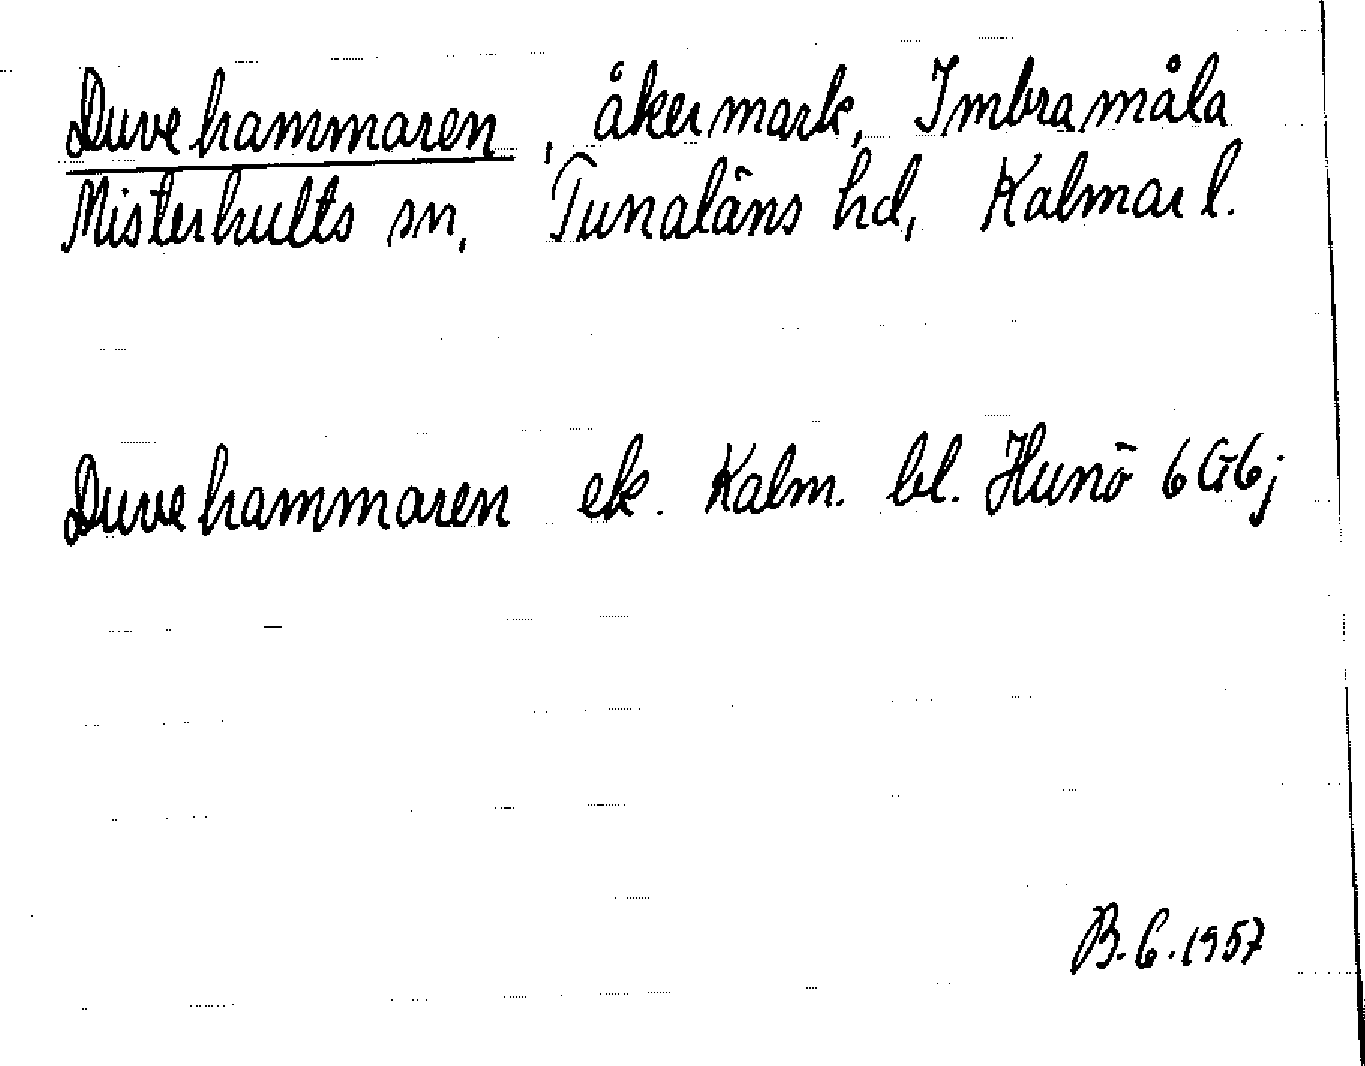 Duvehammaren, åkermark, Imbramåla
Misterhults sn, Tunaläns hd, Kalmar l.
Duvehammaren ek. Kalm. bl. Hunö 6G6j
B.G.1957